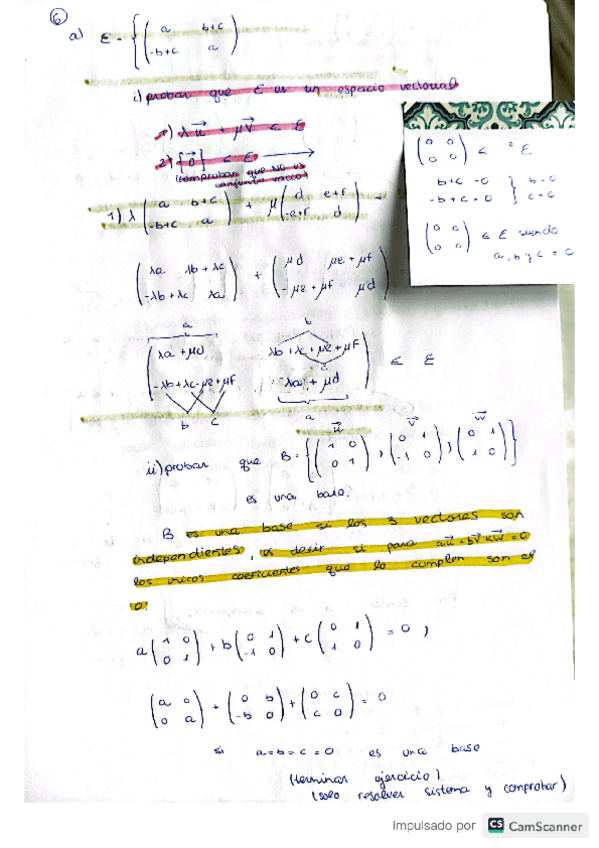 6
a) E = { ( a b+c
-b+c a )
i) probar que E es un espacio vectorial
1) λu⃗ + μv⃗ ∈ E
2) {0⃗} ∈ E →
(comprobar que NO es
conjunto vacío)
( 0 0
0 0 ) ∈ E
b+c = 0 } b = 0
-b+c = 0 c = c
( 0 0
0 0 ) ∈ E siendo
a, b y c = 0
1) λ ( a b+c
-b+c a ) + μ ( d e+f
-e+f d ) =
( λa λb+λc
-λb+λc λa ) + ( μd μe+μf
-μe+μf μd )
a b
( λa+μd λb+λc+μe+μf
c
-λb+λc-μe+μf λa+μd ) ∈ E
b c a
u⃗ v⃗ w⃗
ii) probar que B = { ( 1 0
0 1 ), ( 0 1
-1 0 ), ( 0 1
1 0 ) }
es una base.
B es una base si los 3 vectores son
independientes, es desir si para au⃗+bv⃗+cw⃗=0
los unicos coeficientes que lo cumplen son el
0.
a ( 1 0
0 1 ) + b ( 0 1
-1 0 ) + c ( 0 1
1 0 ) = 0 ,
( a 0
0 a ) + ( 0 b
-b 0 ) + ( 0 c
c 0 ) = 0
si a=b=c=0 es una base
(terminar ejercicio)
(solo resolver sistema y comprobar)
Impulsado por CS CamScanner